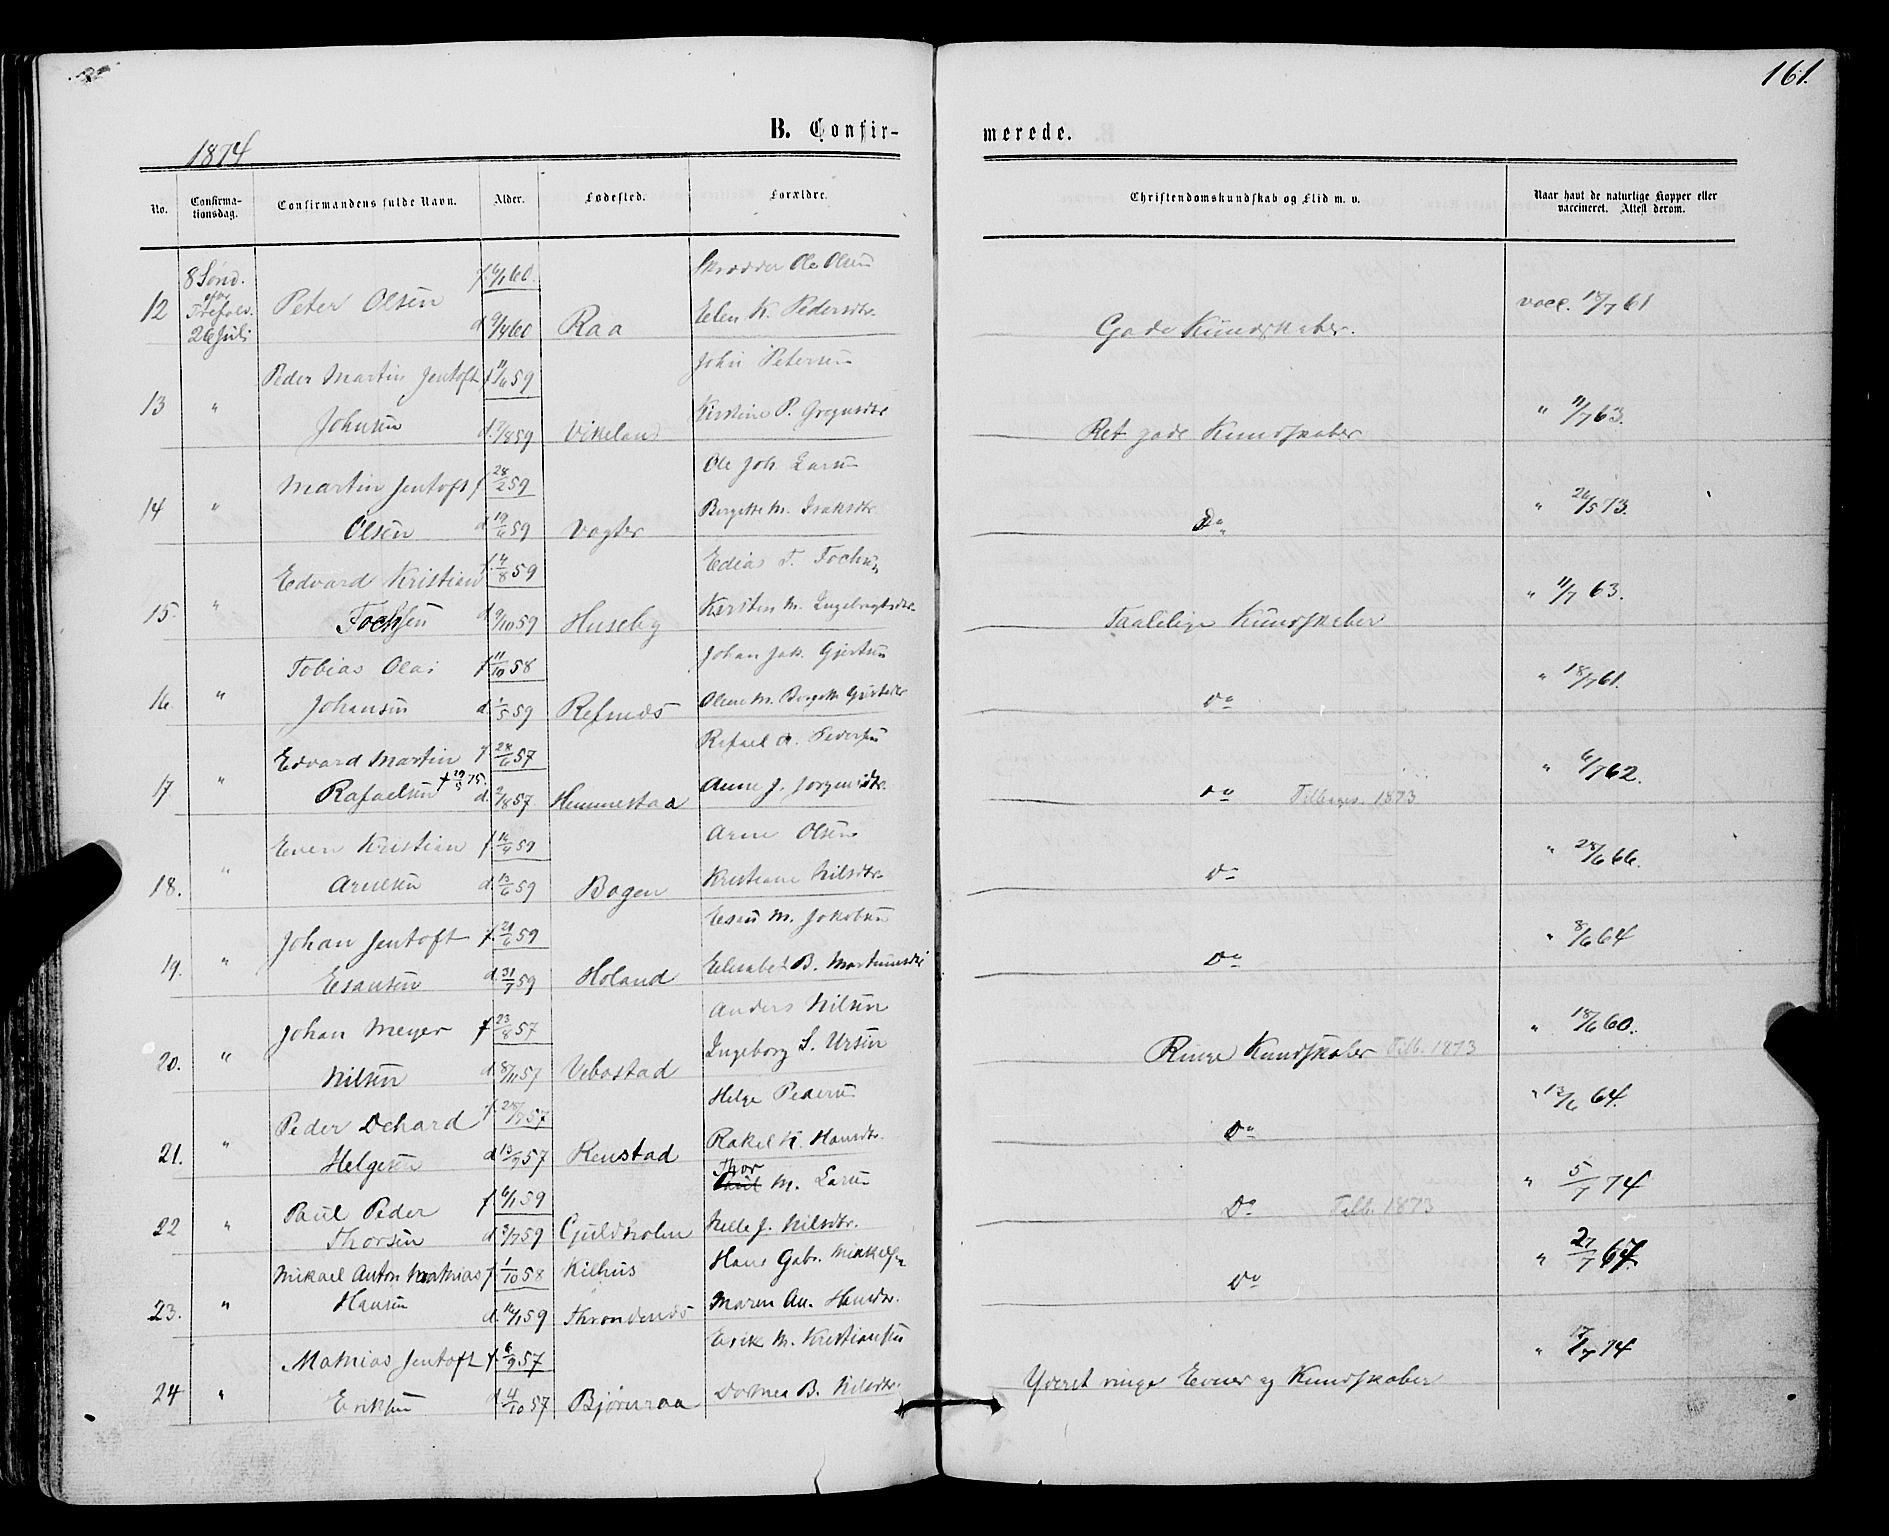 161.
1874
B. Confir-
merede.
No. Confirma-tionsdag. Confirmandens fulde Navn. Alder. Fødested. Forældre. Christendomskundskab og Flid m. v. Naar havt de naturlige Kopper eller vaccineret. Attest derom.
8 Sønd.
26 Juli
12 Peter Olsen f. 6/1 60. d. 9/4 60 Raa Ole Olsen
Elen K. Pedersdtr. Gode Kundskaber. vacc. 18/7 61
13 " Peder Martin Jentoft f 11/6 59 John Petersen
Johnsen d. 7/8 59 Vikeland Kirstine P. Ret gode Kundskaber " 11/7 63.
14 " Martin Jentoft f 28/2 59 Ole Joh. Larsen
Olsen d. 19/6 59 Vogter Bergitte M. Isaksdtr. Do " 26/5 73.
15. " Edvard Kristian f. 4/8 59
Fochsen d. 9/10 59 Huseby Kirsten M. Ingebrigtsdtr. Taalelige Kundskaber " 11/7 63.
16. " Tobias Olai f 11/10 58 Johan Jak. Gjertsen
Johansen d. 1/5 59 Refsnæs Olene M. Do " 18/7 61.
17 " Edvard Martin f 28/6 57 Rafael A. Pedersen
Rafaelsen d. 2/8 57 Hemmestaa Anne J. Jørgensdtr. Do 1873 " 6/7 62.
18. " Even Kristian f 14/4 59 Arne Olsen
Arnesen d. 13/6 59 Bogen Kristiane Nilsdtr. Do " 28/6 66.
19. " Johan Jentoft f. 21/6 59 Esau M. Jakobsen
Esausen d. 31/7 59 Holand Elisabet B. Martinusdtr Do " 8/6 64
20. " Johan Meyer f 23/8 57 Anders Nilsen
Nilsen d 8/11 57 Vebostad Ingeborg S. Ursin Ringe Kundskaber Tilb. 1873 " 18/6 60.
21. " Peder Dehard f. 28/7 57 Helge Pedersen
Helgesen d 13/9 57 Renstad Rakel K. Hansdtr. Do " 13/6 64.
22 " Paul Peder f. 6/1 59 Thor M. Larsen
Thorsen d 3/7 59 Guldholm Nelle J. Nilsdtr. Do Tilb. 1873 " 5/7 74
23. " Mikael Anton Mathias f. 1/10 58 Kilhus Hans Gabr. Mikkelsen
Hansen d. 16/1 59 Throndenæs Maren An. Hansdtr. Do " 27/7 67.
24 " Mathias Jentoft f. 6/9 57 Erik M. Kristiansen
Eriksen d 4/10 57 Bjørnraa Dorthea B. Nilsdtr. Yderst ringe Evner og Kundskaber " 17/7 74